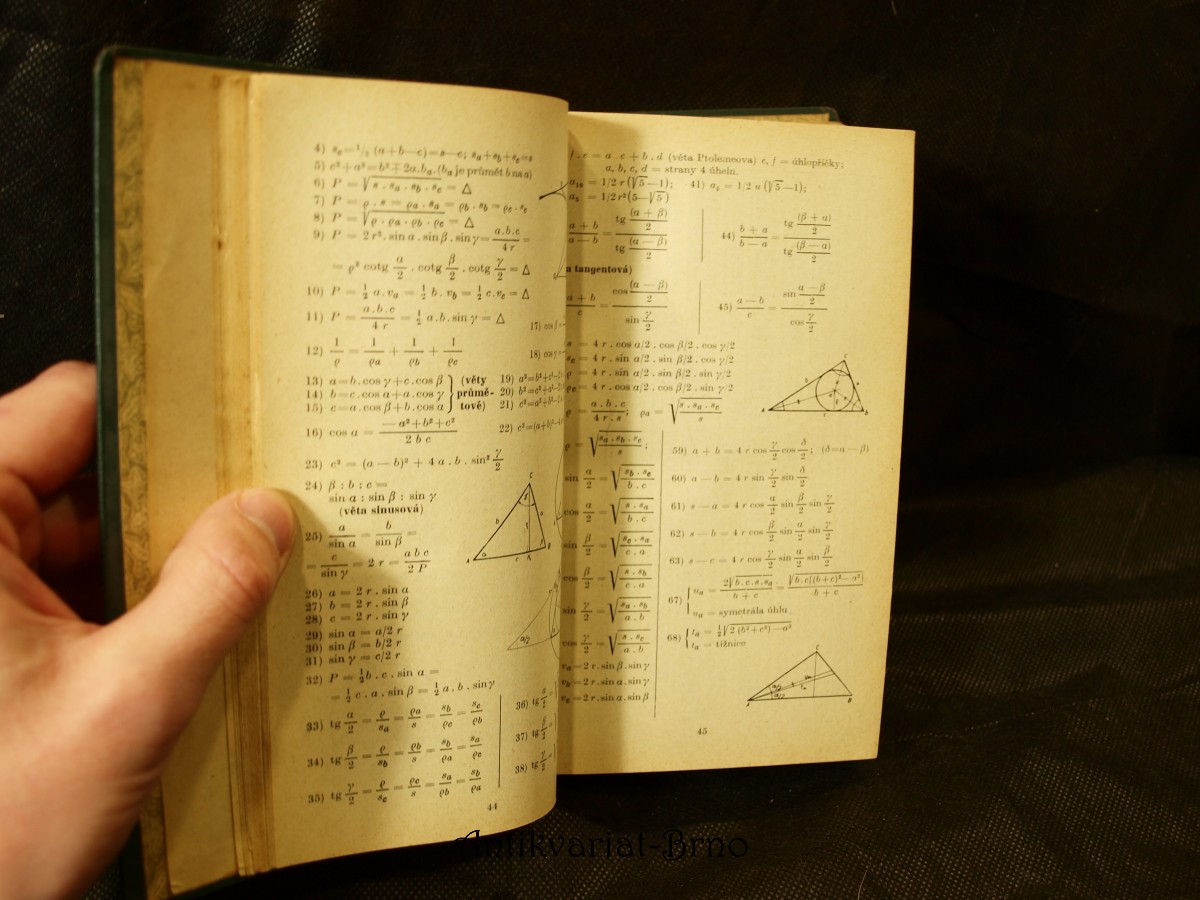 4) s_c = 1/2 (a+b—c) = s—c; s_a+s_b+s_c=s
5) c²+a²=b²∓2a.b_a.(b_a je průmět b na a)
6) P = √(s . s_a . s_b . s_c) = Δ
7) P = ϱ . s = ϱa . s_a = ϱb . s_b = ϱc . s_c
8) P = √(ϱ . ϱa . ϱb . ϱc) = Δ
9) P = 2 r² . sin α . sin β . sin γ = a.b.c / 4 r =
= ϱ² cotg α/2 . cotg β/2 . cotg γ/2 = Δ
10) P = ½ a . v_a = ½ b . v_b = ½ c . v_c = Δ
11) P = a.b.c / 4 r = ½ a.b. sin γ = Δ
12) 1/ϱ = 1/ϱa + 1/ϱb + 1/ϱc
13) a = b . cos γ + c . cos β
14) b = c . cos α + a . cos γ
15) c = a . cos β + b . cos α
(věty průmětové)
16) cos α = —a²+b²+c² / 2 b c
17) cos
18) cos
19) a²=b²+c²
20) b²=c²+a²
21) c²=a²+b²
22) c²=(a+b)²
23) c² = (a — b)² + 4 a . b . sin² γ/2
24)
sin α : sin β : sin γ
(věta sinusová)
25) a / sin α = b / sin β =
= c / sin γ = 2 r = a b c / 2 P
26) a = 2 r . sin α
27) b = 2 r . sin β
28) c = 2 r . sin γ
29) sin α = a/2 r
30) sin β = b/2 r
31) sin γ = c/2 r
32) P = ½ b . c . sin α =
= ½ c . a . sin β = ½ a . b . sin γ
33) tg α/2 = ϱ/s_a = ϱa/s = s_b/ϱc = s_c/ϱb
34) tg β/2 = ϱ/s_b = ϱb/s = s_b/ϱa = s_a/ϱc
35) tg γ/2 = ϱ/s_c = ϱc/s = s_a/ϱb = s_b/ϱa
36) tg α/2 =
37) tg β/2 =
38) tg γ/2 =
44
f . e = a . c + b . d (věta Ptolemeova) e, f = úhlopříčky;
a, b, c, d = strany 4 úheln.
a₁₀ = 1/2 r (√5—1); 41)
44) b + a / b — a = tg (β + α)/2 / tg (β — α)/2
a + b / a — b = tg (α + β)/2 / tg (α — β)/2
a tangentová)
a + b / c = cos (α — β)/2 / sin γ/2
45) a — b / c = sin α — β/2 / cos γ/2
s = 4 r . cos α/2 . cos β/2 . cos γ/2
s_c = 4 r . sin α/2 . sin β/2 . cos γ/2
ϱ = 4 r . sin α/2 . sin β/2 . sin γ/2
ϱc = 4 r . cos α/2 . cos β/2 . sin γ/2
ϱ = a . b . c / 4 r . s; ϱa = √(s . s_b . s_c / s_a)
ϱ = √(s_a . s_b . s_c / s);
sin α/2 = √(s_b . s_c / b . c)
cos α/2 = √(s . s_a / b . c)
sin β/2 = √(s_c . s_a / c . a)
cos β/2 = √(s . s_b / c . a)
sin γ/2 = √(s_a . s_b / a . b)
cos γ/2 = √(s . s_c / a . b)
v_a = 2 r . sin β . sin γ
v_b = 2 r . sin α . sin γ
v_c = 2 r . sin α . sin β
59) a + b = 4 r cos γ/2 cos δ/2; (δ=α — β)
60) a — b = 4 r sin γ/2 sin δ/2
61) s — a = 4 r cos α/2 sin β/2 sin γ/2
62) s — b = 4 r cos β/2 sin α/2 sin γ/2
63) s — c = 4 r cos γ/2 sin α/2 sin β/2
67) u_a = 2√(b . c . s . s_a) / b + c = √(b . c[(b+c)²—a²]) / b + c
u_a = symetrála úhlu
68) t_a = ½√(2 (b²+c²)—a²)
t_a = tižnice
45
Antikvariat-Brno